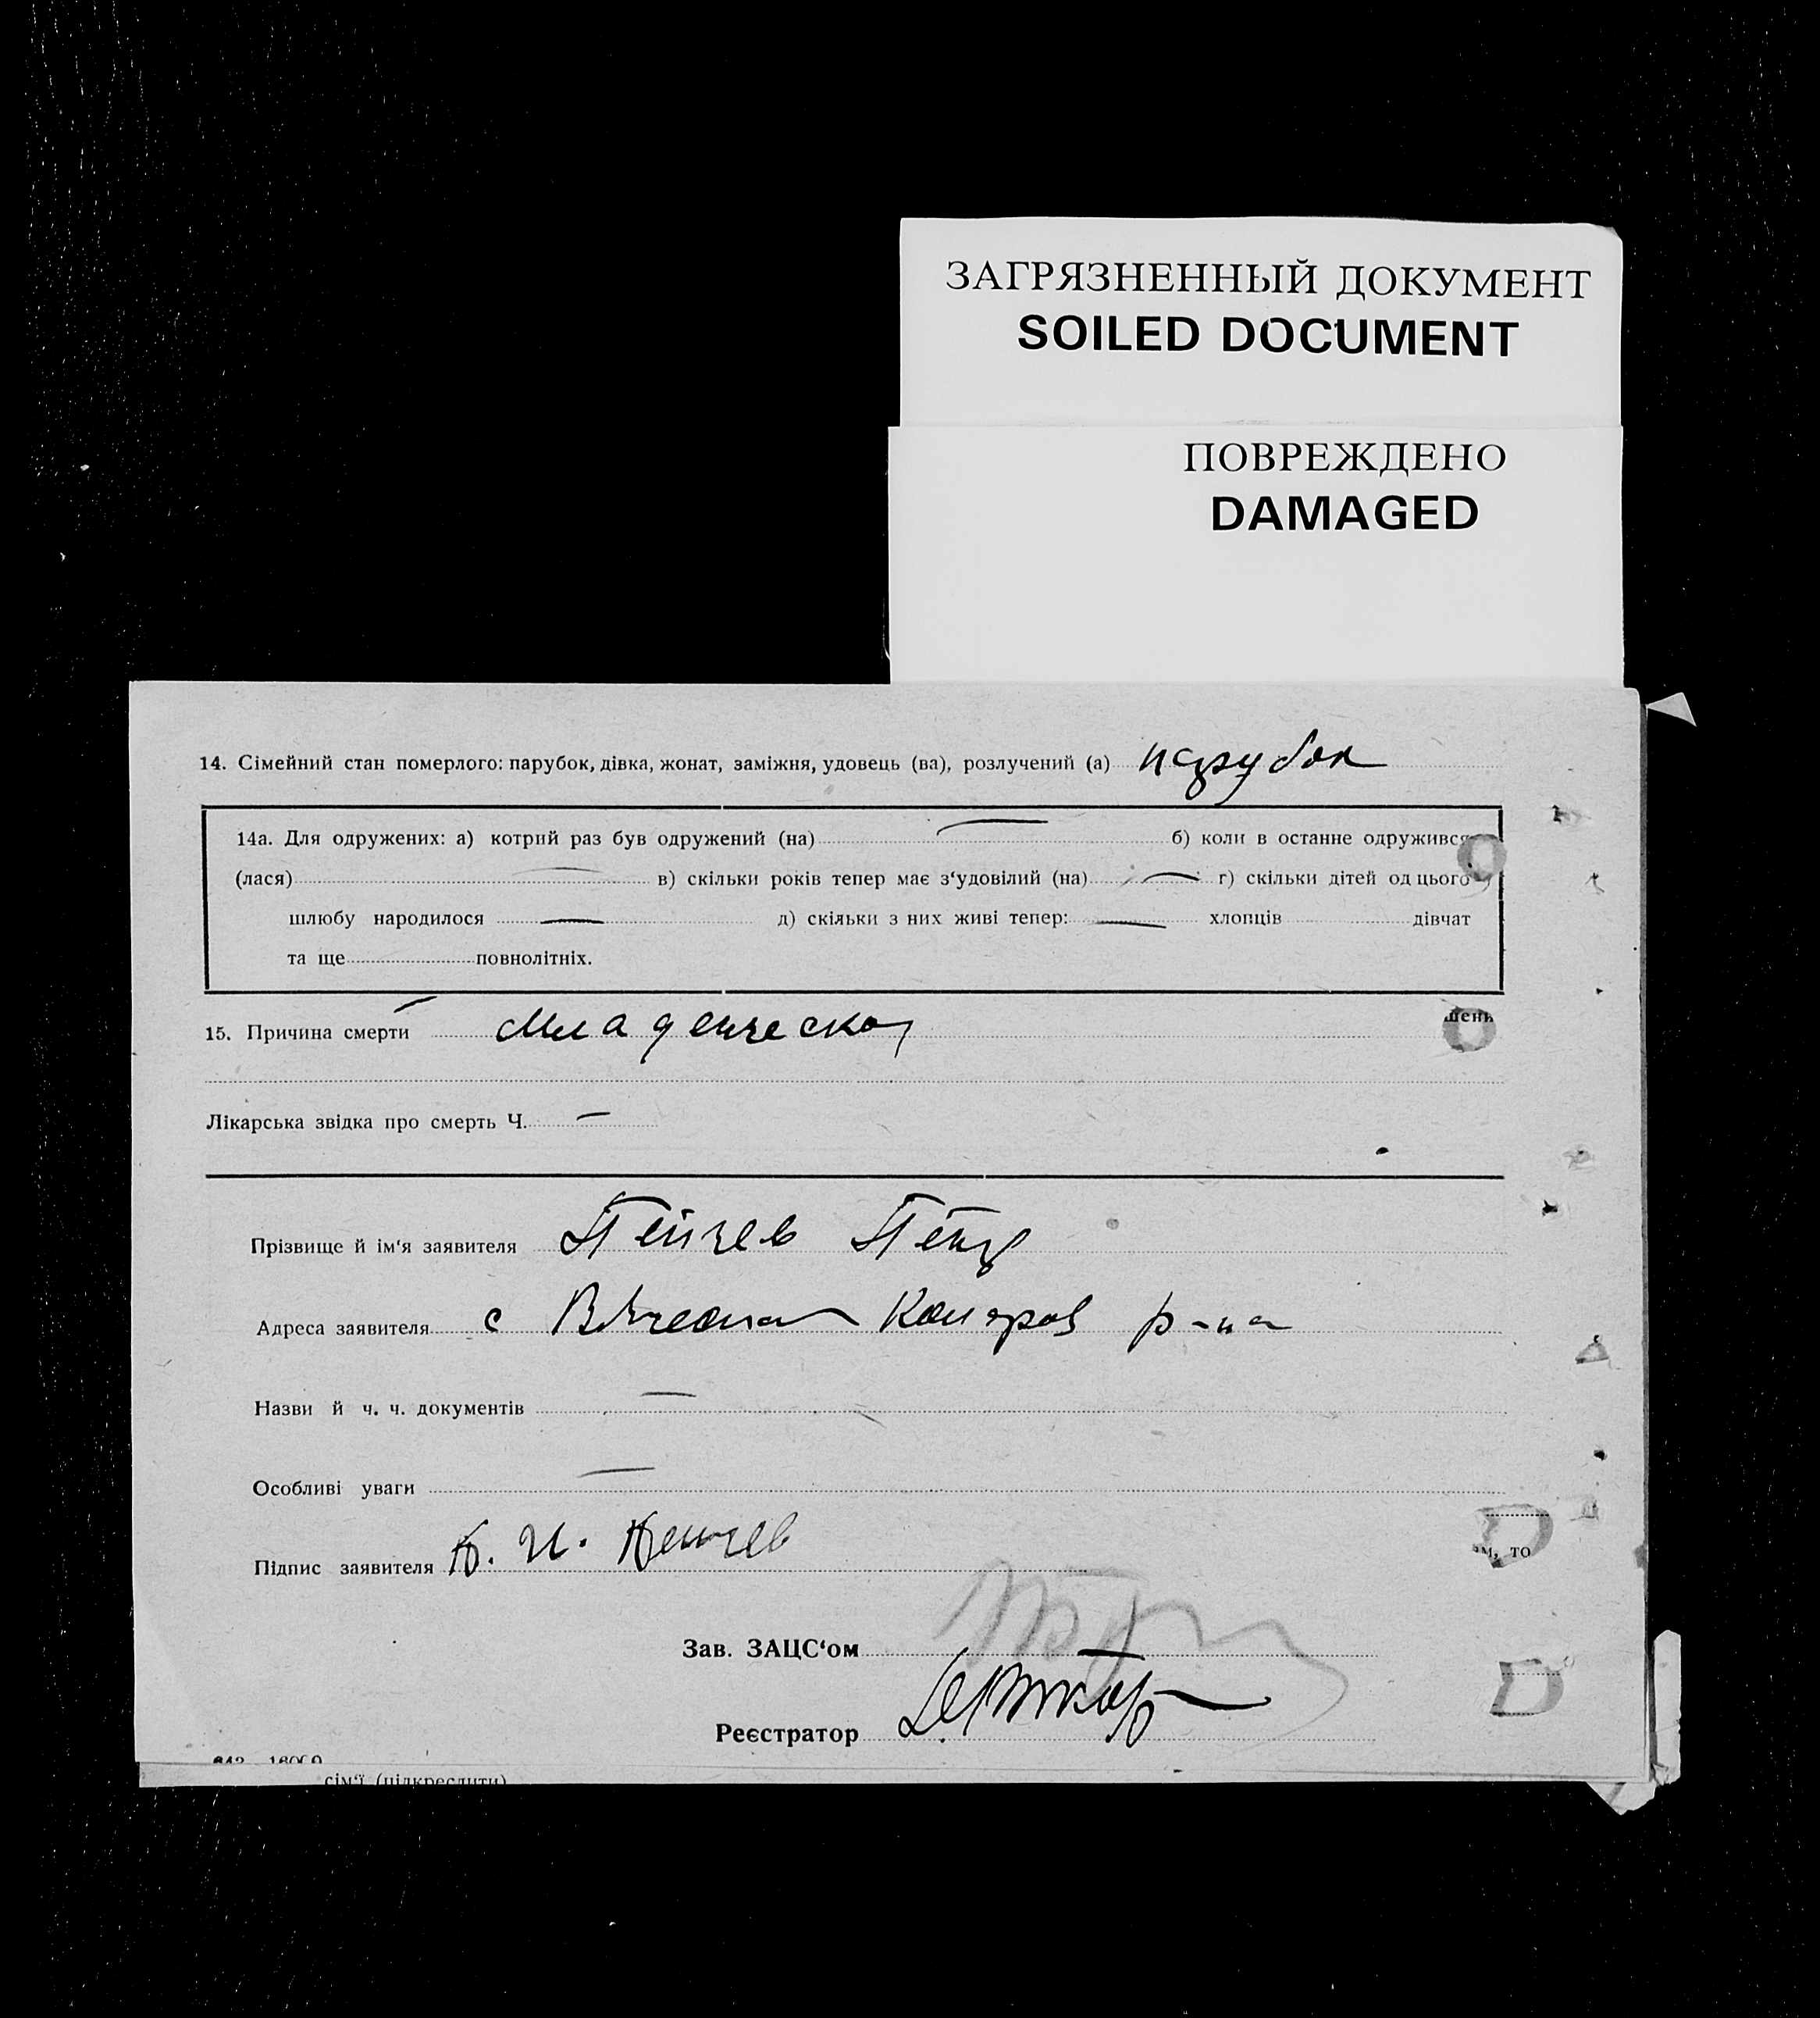 ЗАГРЯЗНЕННЫЙ ДОКУМЕНТ
SOILED DOCUMENT
ПОВРЕЖДЕНО
DAMAGED
14. Сімейний стан померлого: парубок, дівка, жонат, заміжня, удовець (ва), розлучений (а) парубок
14а. Для одружених: а) котрий раз був одружений (на) — б) коли в останне одружився
(лася) — в) скільки років тепер має з‘удовілий (на) — г) скільки дітей од цього
шлюбу народилося — д) скільки з них живі тепер: — хлопців дівчат
та ще повнолітніх.
15. Причина смерти Младенческая
шени
Лікарська звідка про смерть Ч. —
Прізвище й ім‘я заявителя Пейчев Петр
Адреса заявителя с р-на
Назви й ч. ч. документів —
Особливі уваги —
Підпис заявителя П. И. Пейчев
ам, то
Зав. ЗАЦС‘ом
Реєстратор
сім‘ї (підкреслити)